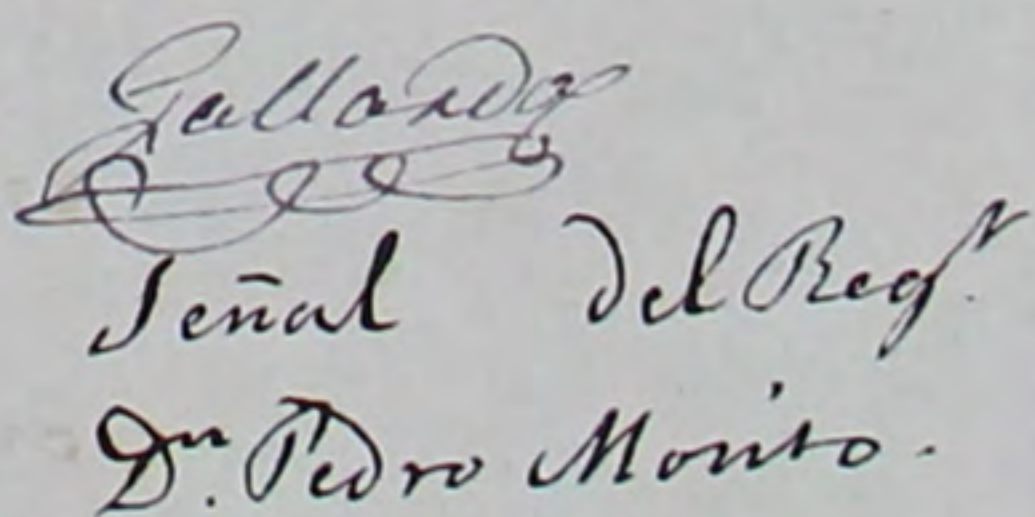 Gallardo
Señal del Regr.
Dn. Pedro Morito.